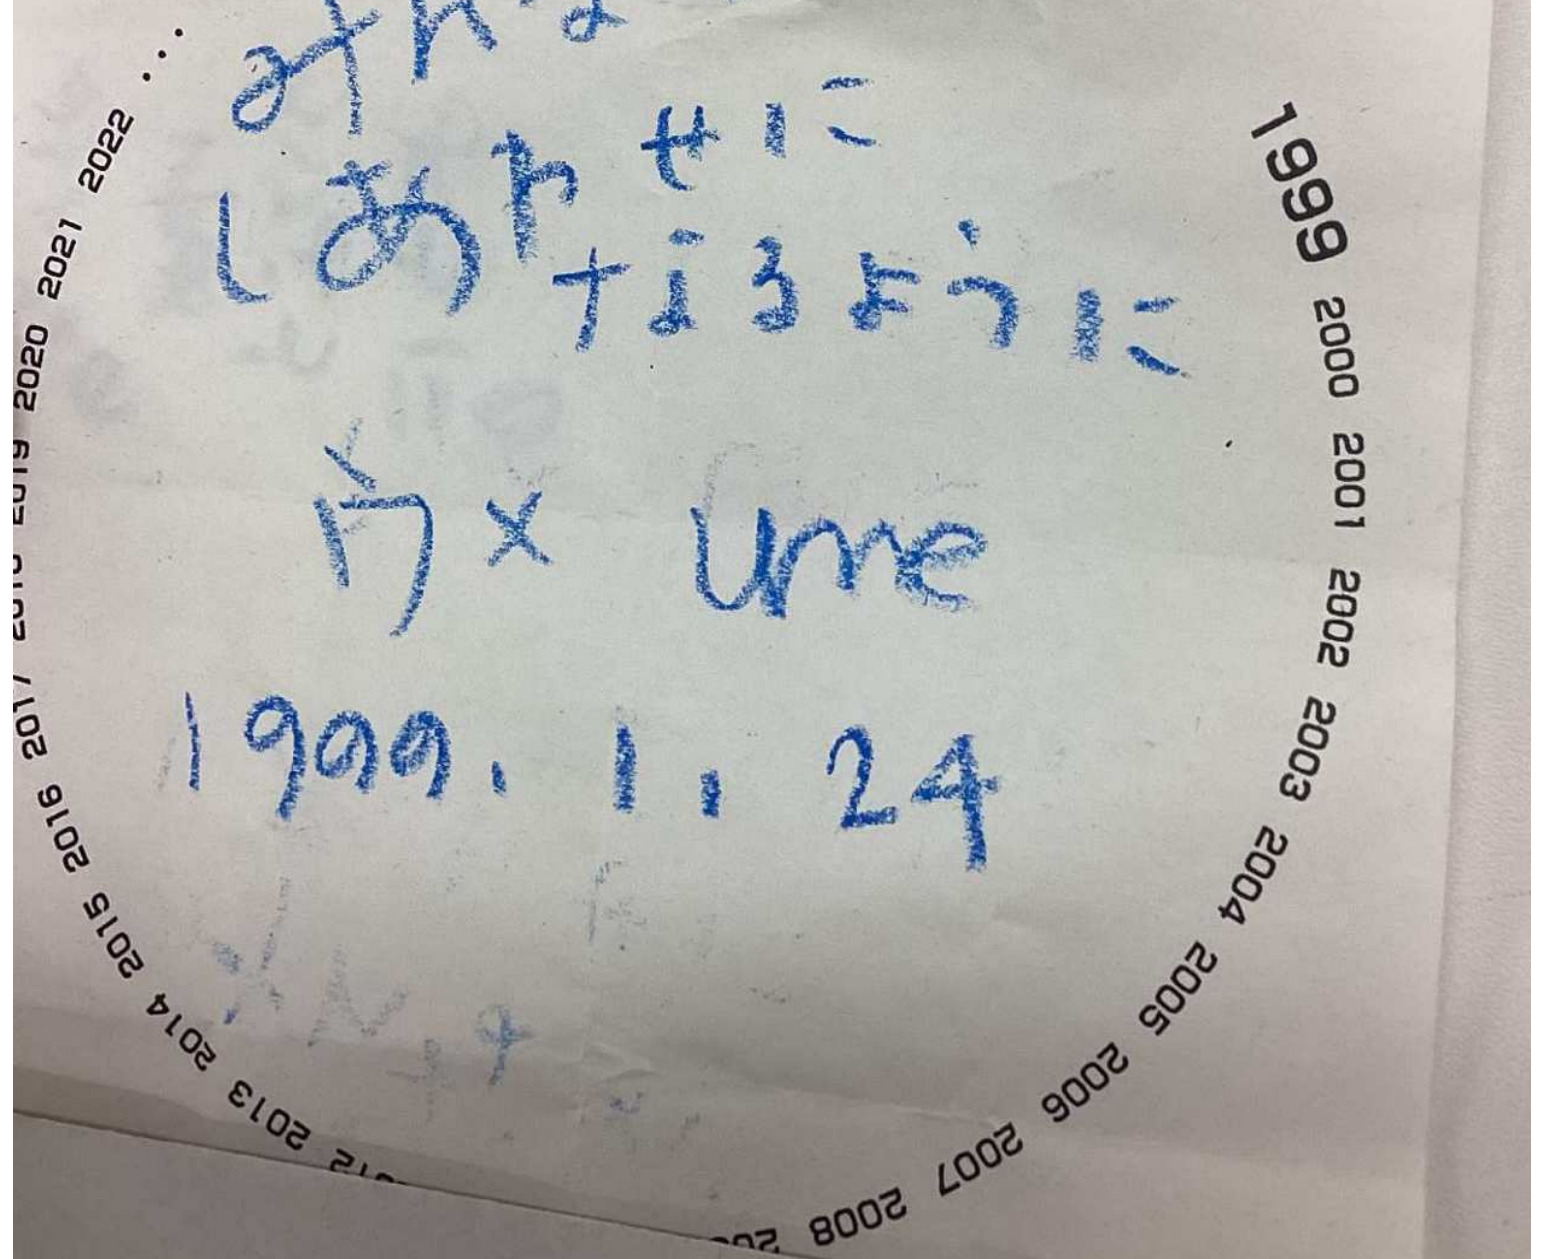 みんな
しあわせに
なるように
ウメ Ume
1999. 1. 24
1999 2000 2001 2002 2003 2004 2005 2006 2007 2008
2013 2014 2015 2016 2017
2019 2020 2021 2022 ...